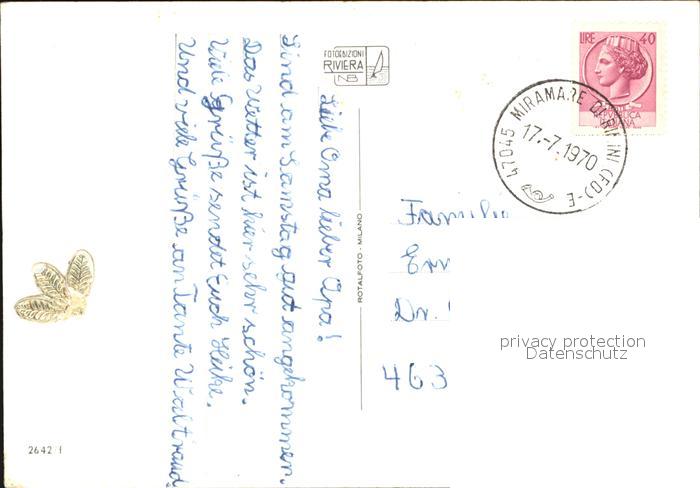 Liebe Oma lieber Opa!
Sind am Samstag gut angekommen.
Das Wetter ist hier sehr schön.
Viele Grüße sendet Euch Heike.
Und viele Grüße an Tante Waltraud
FOTOEDIZIONI
RIVIERA
NB
ROTALFOTO - MILANO
LIRE 40
47045 MIRAMARE DI RIMINI (FO)-E
17.-7.1970
Familie
Dr.
463
privacy protection
Datenschutz
2642 f